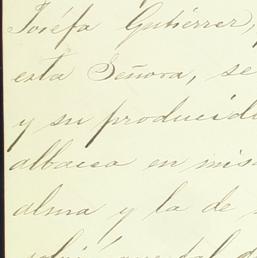 Joséfa Gutiérrez,
esta Señora, se
y su producido
albacea en misa
alma y la de